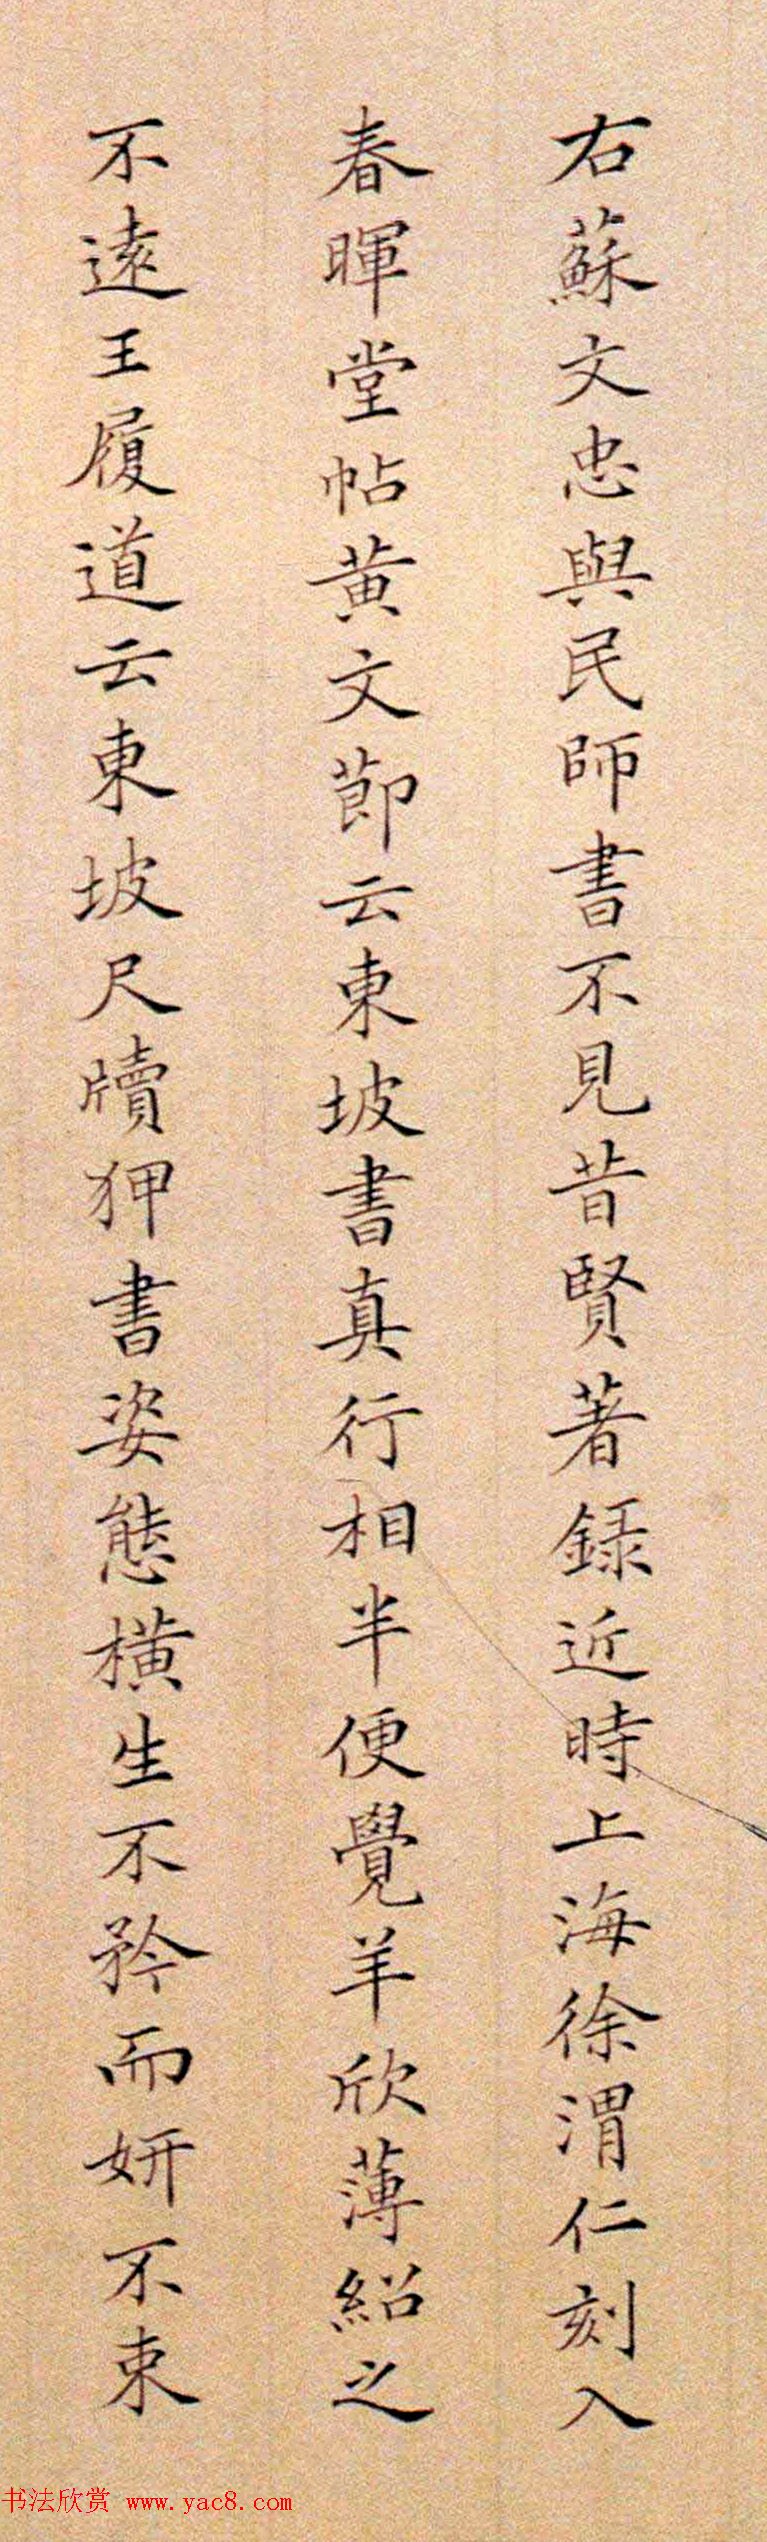 右蘇文忠與民師書不見昔賢著録近時上海徐渭仁刻入
春暉堂帖黄文節云東坡書真行相半便覺羊欣薄紹之
不遠王履道云東坡尺牘狎書姿態橫生不矜而妍不束
书法欣赏 www.yac8.com